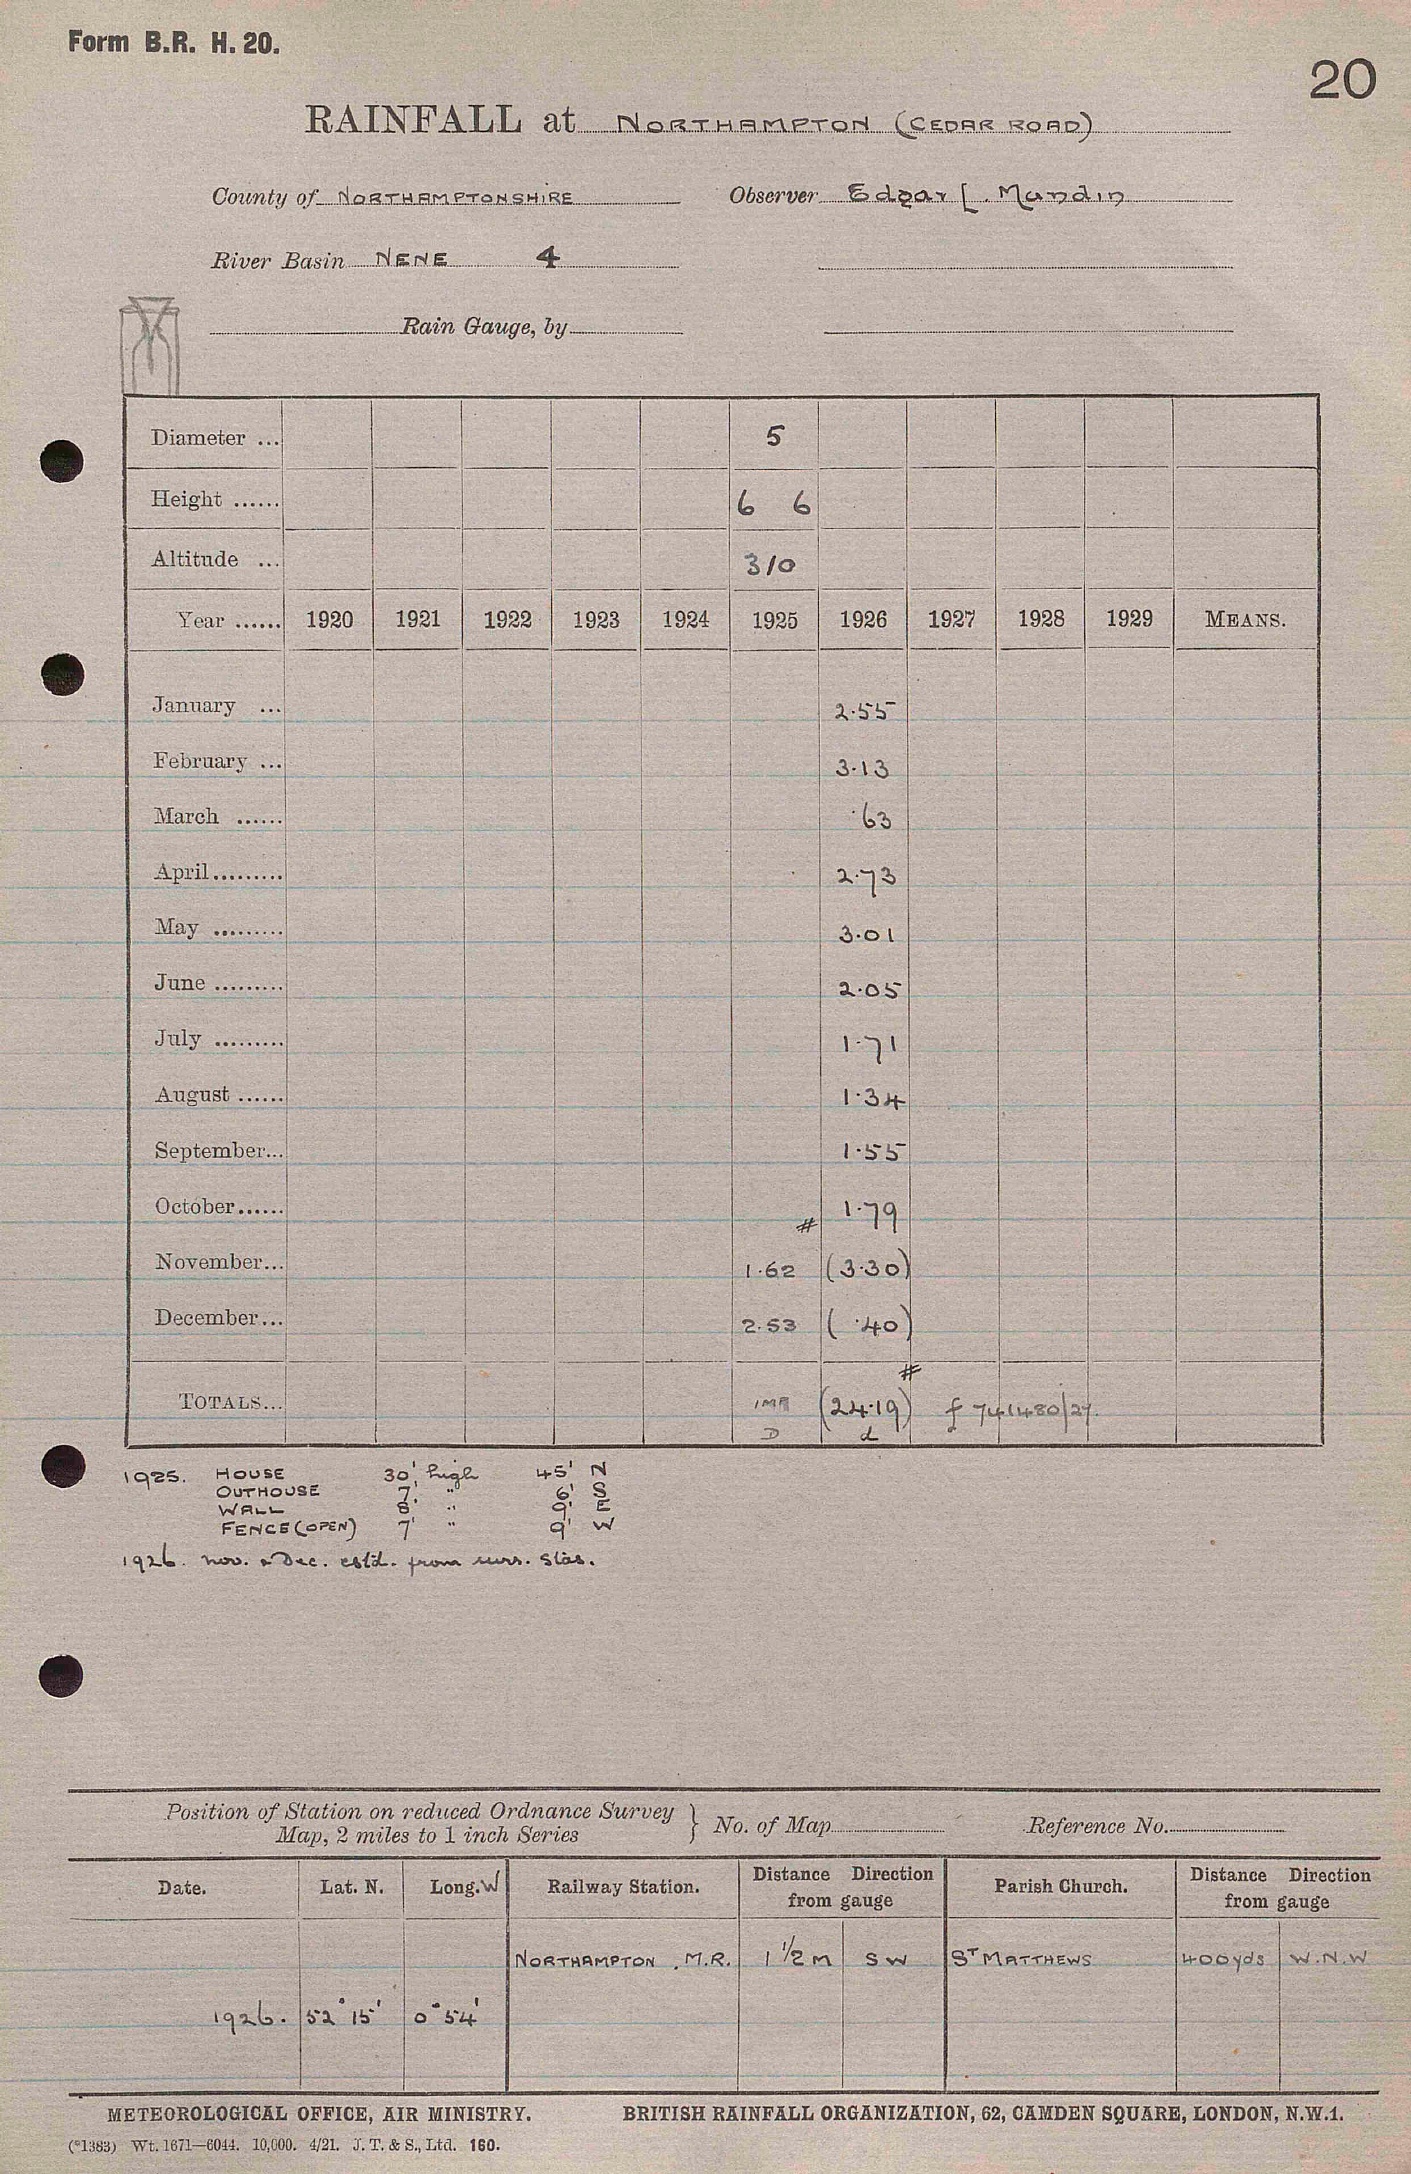 Form B.R. H. 20.
20
RAINFALL at NORTHAMPTON (CEDAR ROAD)
County of NORTHAMPTONSHIRE Observer Edgar L. Mundin
River Basin NENE 4
Rain Gauge, by
Diameter ... 5
Height ...... 6 6
Altitude ... 310
Year ...... 1920 1921 1922 1923 1924 1925 1926 1927 1928 1929 MEANS.
January ... 2.55
February ... 3.13
March ...... .63
April......... 2.73
May ......... 3.01
June ......... 2.05
July ......... 1.71
August ...... 1.34
September... 1.55
October...... # 1.79
November... 1.62 (3.30)
December... 2.53 ( .40)
#
TOTALS... (24.19) f 741480/27.
D d
1925. HOUSE 30' high 45' N
OUTHOUSE 7' " 6' S
WALL 8' " 9' E
FENCE (OPEN) 7' " 9' W
1926. Nov. & Dec. estd. from surr. stas.
Position of Station on reduced Ordnance Survey
Map, 2 miles to 1 inch Series } No. of Map Reference No.
Date. Lat. N. Long. W Railway Station. Distance Direction from gauge Parish Church. Distance Direction from gauge
NORTHAMPTON . M.R. 1 1/2 M SW ST MATTHEWS 400 yds W.N.W
1926. 52° 15' 0° 54'
METEOROLOGICAL OFFICE, AIR MINISTRY. BRITISH RAINFALL ORGANIZATION, 62, CAMDEN SQUARE, LONDON, N.W.1.
(*1383) Wt. 1671—6044. 10,000. 4/21. J. T. & S., Ltd. 160.